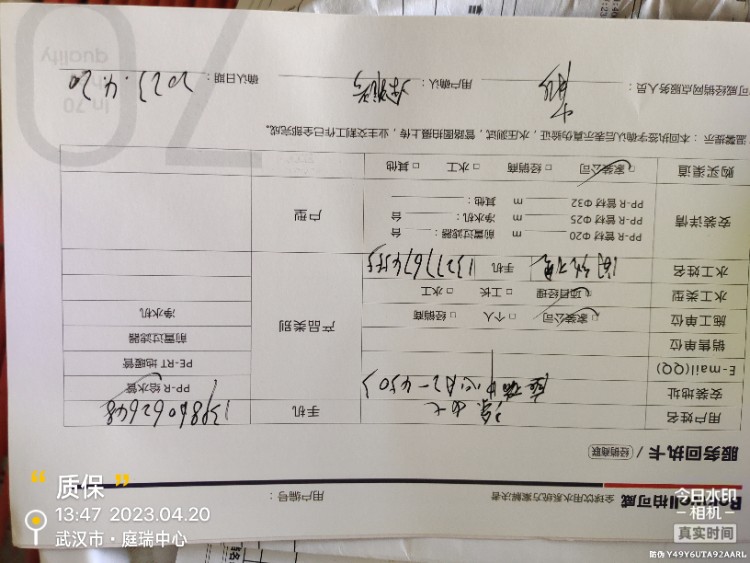 全球饮用水系统方案解决者
用户编号：
服务回执卡 / 经销商联
用户姓名
手机 13986062648
安装地址 A2-4503
PP-R给水管
E-mail(QQ)
PE-RT地暖管
销售单位
前置过滤器
施工单位 □家装公司 □个人 □经销商
产品类别
净水机
水工类型 □项目经理 □工长 □水工
水工姓名
手机
安装详情
PP-R管材 Φ20 m 前置过滤器： 台
PP-R管材 Φ25 m 净水机： 台
PP-R管材 Φ32 m 其他：
户型
购买渠道 □家装公司 □经销商 □水工 □其他
温馨提示：本回执签字确认后表示真伪验证，水压测试，管路图拍摄上传，业主交割工作已全部完成。
可威经销网点服务人员：
用户确认：
确认日期： 2023.4.20
70
quality
In 70
“质保”
13:47 2023.04.20
武汉市·庭瑞中心
今日水印
相机
真实时间
防伪 Y49Y6UTA92AARL